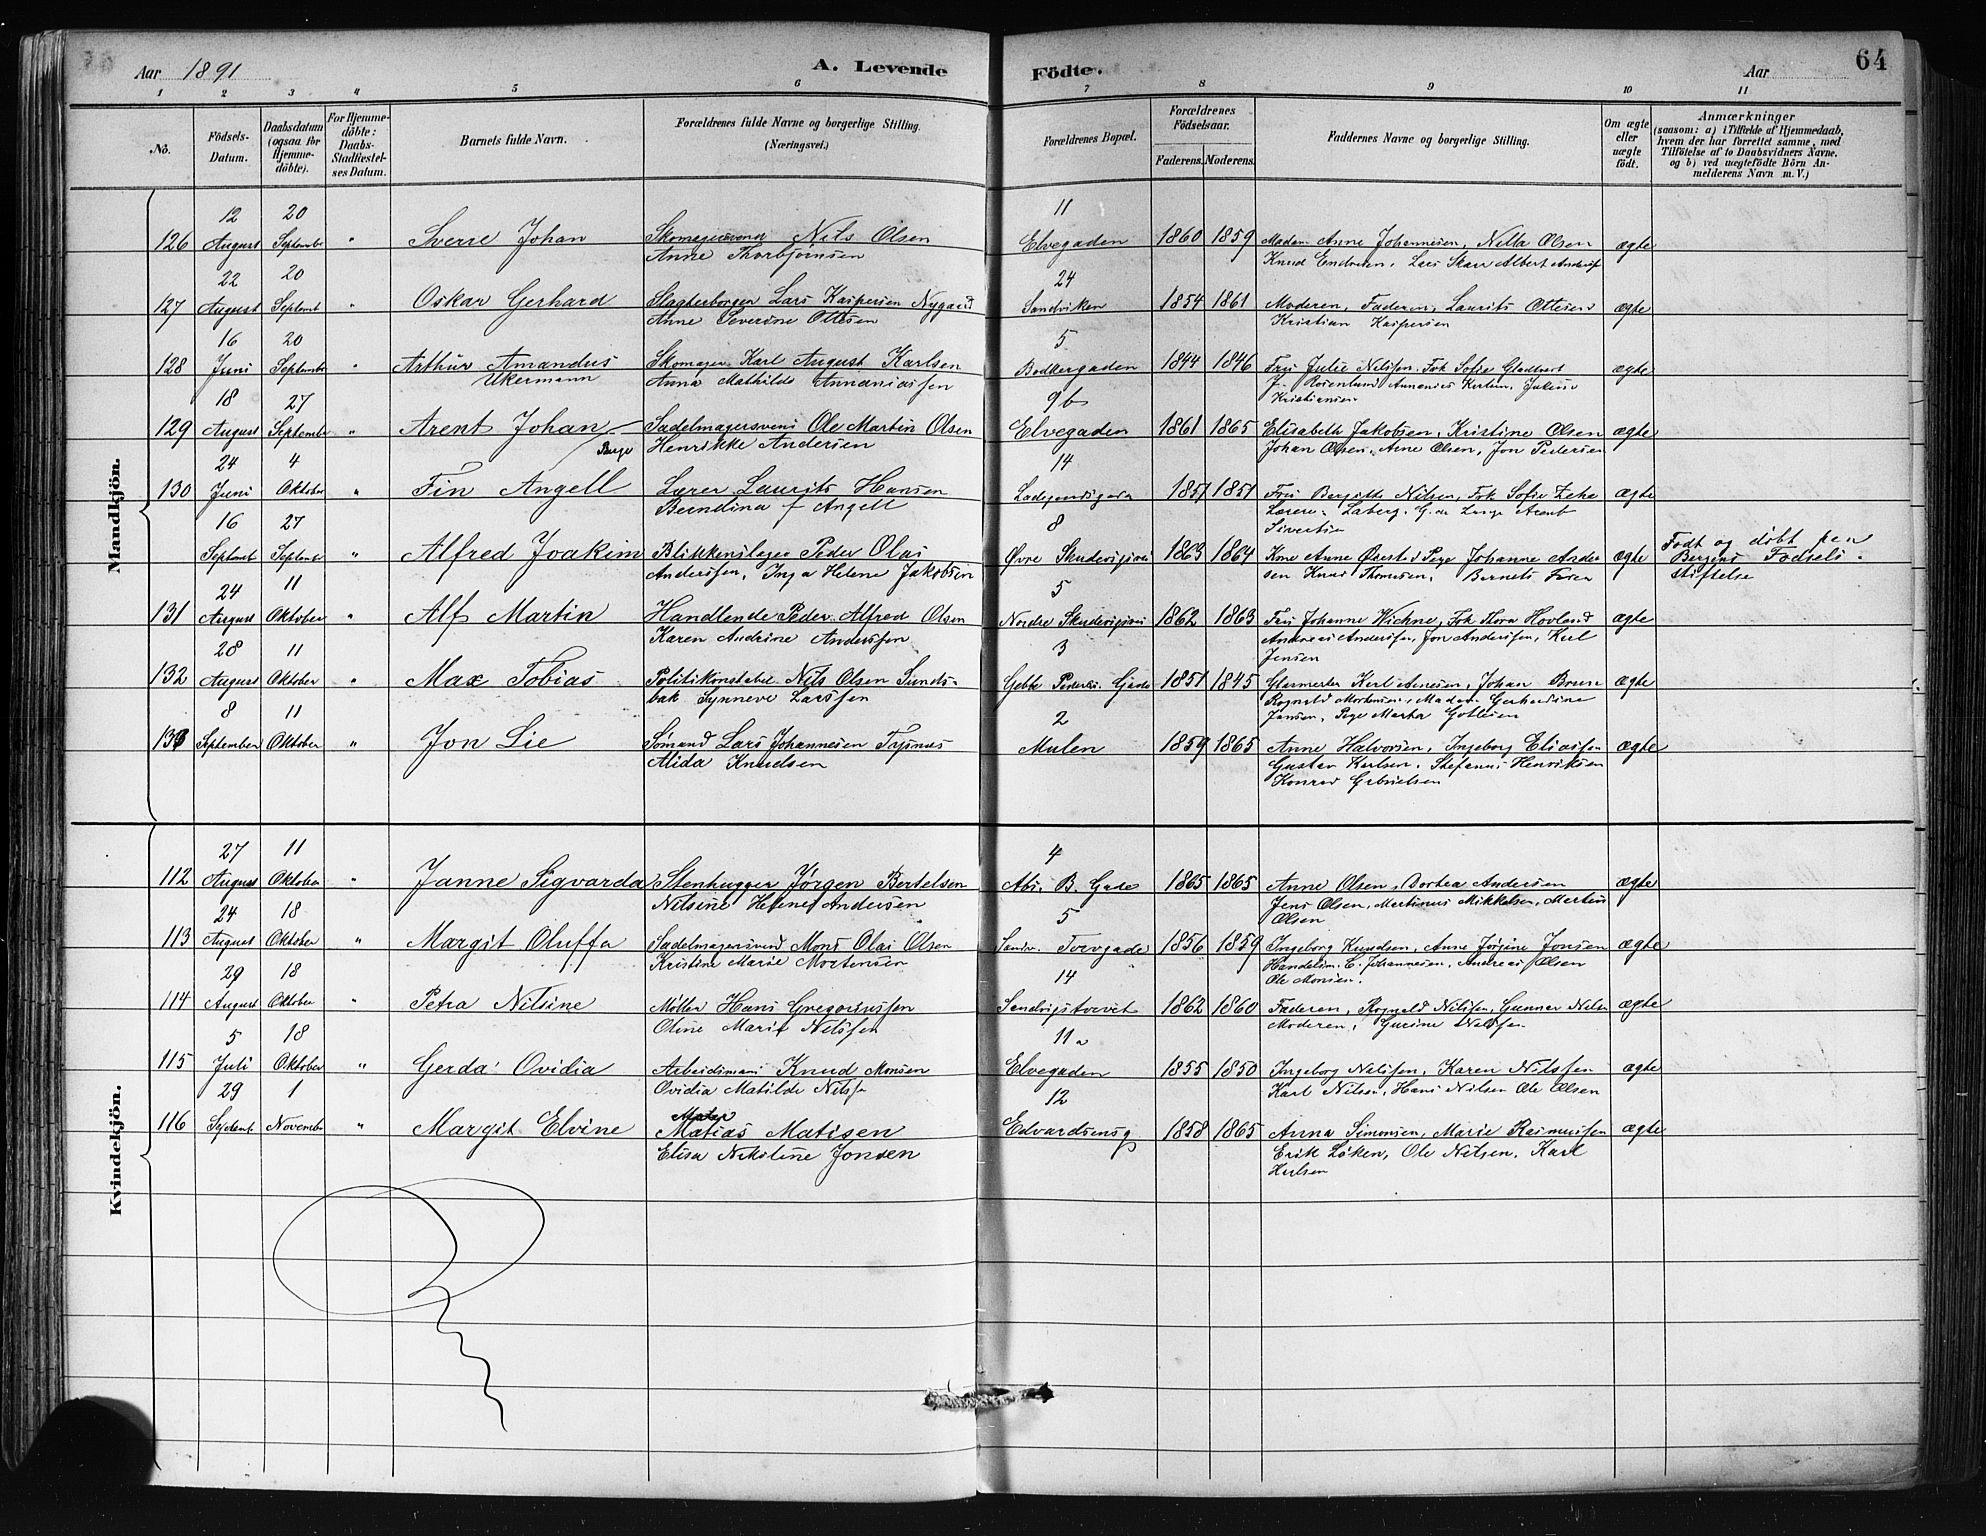 Aar 1891 A. Levende Födte. Aar 64
1 2 3 4 5 6 7 8 9 10 11
No.
Födsels-Datum.
Daabsdatum (ogsaa for Hjemme-döbte).
For Hjemme-döbte: Daabs-Stadfæstel-ses Datum.
Barnets fulde Navn.
Forældrenes fulde Navne og borgerlige Stilling.
(Næringsvei.)
Forældrenes Bopæl.
Forældrenes Födselsaar.
Faderens. Moderens.
Faddernes Navne og borgerlige Stilling.
Om ægte eller uægte födt.
Anmærkninger
(saasom: a) i Tilfælde af Hjemmedaab,
hvem der har forrettet samme, med
Tilföielse af to Daabsvidners Navne,
og b) ved uægtefödte Börn An-
melderens Navn m. V.)
Mandkjön.
12 20 11
126 August Septembe " Sverre Johan Skomagersvend Nils Olsen Elvegaden 1860 1859 Madam Anne Johannesen, Nilla Olsen ægte
Anne Thorbjørnsen Knud Endresen, Lars Skar Albert
22 20 24
127 August Septemt " Oskar Gerhard Slagterborger Lars Kaspersen Nygaard Sandviken 1854 1861 Moderen, Faderen, Laurits Ottesen ægte
Anne Severine Ottesen Kristian Kaspersen
16 20 5
128 Juni Septembe " Arthur Amandus Skomager Karl August Karlsen Bødkergaden 1844 1846 Fru Julie Nilsen, Frk Sofie ægte
Ukermann Anna Mathilde Annaniassen Rosenlund Annanias Karlsen,
Kristiansen
18 27 9b
129 August Septembe " Arent Johan Sadelmagersvend Ole Martin Olsen Elvegaden 1861 1865 Elisabeth Jakobsen, Kristine Olsen ægte
Berge Henrikke Andersen Johan Olsen, Arne Olsen, Jon Pedersen
24 4 14
130 Juni Oktober " Fin Angell Lærer Laurits Hansen Ladegaardsgaden 1857 1851 Fru Bergitte Nilsen, Frk Sofie ægte
Berndina f Angell
Sivertsen
16 27 8
Septemt Septembe " Alfred Joakim Blikkenslager Peder Olai Øvre Skudevigsvei 1863 1864 Kone Anne Pige Johanne Ander ægte Født og døbt paa
Anderssen, Inga Helene Jakobsen sen Knud Thomesen, Barnets Fader Bergens Fødsels-
stiftelse
24 11 5
131 August Oktober " Alf Martin Handlende Peder Alfred Olsen Nordre Skudevigsvei 1862 1863 Fru Johanne Wichne, Frk Thora Hovland ægte
Karen Andrine Anderssen Andreas Anderssen, Jon Anderssen, Karl
Jensen
28 11 3
132 August Oktober " Max Tobias Politikonstabel Nils Olsen Sunds- Gjebke Peders. Gade 1851 1845 Glarmester Karl Arnesen, Johan Brun ægte
bak Synneve Larssen Rognald Mortensen, Madam Gerhardine
Jansen, Pige Marta
8 11 2
133 September Oktober " Jon Lie Sømand Lars Johannesen Tysnes Mulen 1859 1865 Anne Halvorsen, Ingeborg Eliassen ægte
Alida Knudsen Gustav Karlsen, Stefanus Henriksen
Konrad Gabrielsen
Kvindekjön.
27 11 4
112 August Oktober " Janne Sigvarda Stenhugger Jørgen Bertelsen Abs. B. Gade 1865 1865 Anne Olsen, Dortea Andersen ægte
Nilsine Helene Andersen Jens Olsen, Martinus Mikkelsen, Martin
Olsen
24 18 5
113 August Oktober " Margit Oluffa Sadelmagersvend Mons Olai Olsen Sandv. Torvgade 1856 1859 Ingeborg Knudsen, Anne Jørgine Jonsen ægte
Kristine Marie Mortensen Handelsm. C. Johannesen, Andreas Olsen
Ole Monsen.
29 18 14
114 August Oktober " Petra Nilsine Møller Hans Gregoriussen Sandvigstorvet 1862 1860 Faderen, Rognald Nilssen, Gunnar Nilsen ægte
Oline Marie Nilssen Moderen, Gurine Nilssen
5 18 11a
115 Juli Oktober " Gerda Ovidia Arbeidsmand Knud Monsen Elvegaden 1855 1850 Ingeborg Nilssen, Karen Nilssen ægte
Ovidia Matilde Nilss Karl Nilsen, Hans Nilsen Ole Olsen
29 1 12
116 Septemt Novembe " Margit Elvine Matias Matisen Edvardsensg 1858 1865 Anna Simonsen, Marie Rasmussen ægte
Elisa Nikoline Jonsen Erik Løken, Ole Nilsen, Karl